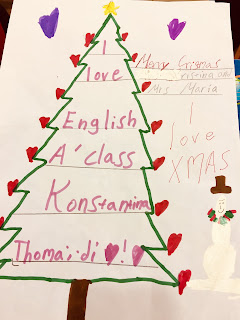 I
love
English
A' class
Konstantina
Thomaidi !
Merry Crismas
Mrs Maria
I
love
XMAS